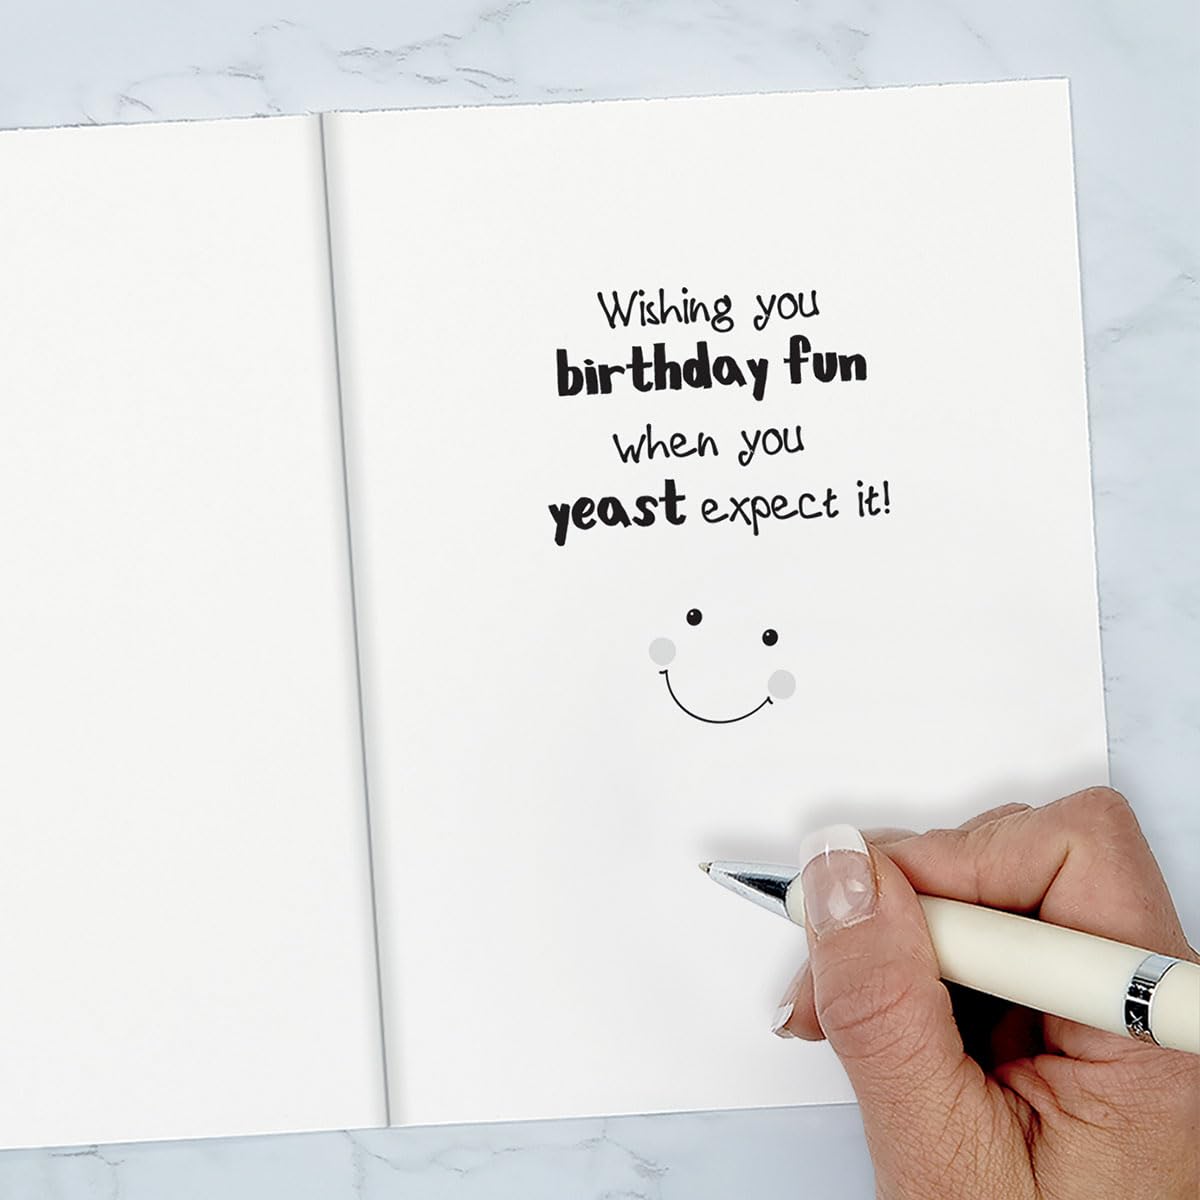 Wishing you
birthday fun
when you
yeast expect it!